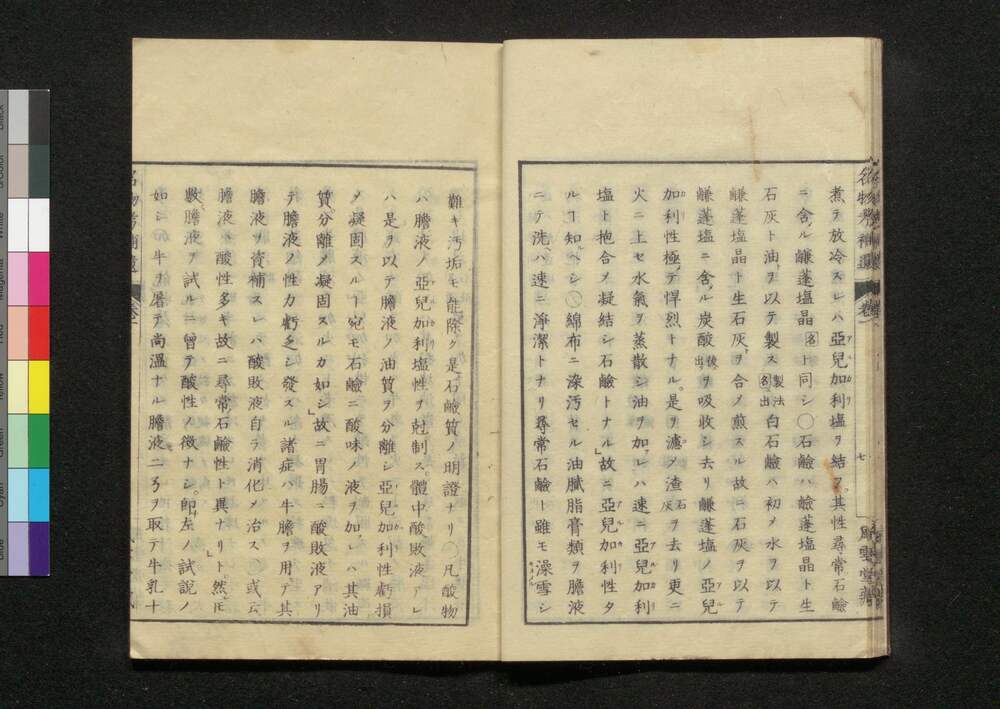 煮テ放冷スレハ亞兒加利塩ヲ結フ其性尋常石鹼
ニ含ル鹻蓬塩晶名ト同シ〇石鹼ハ鹻蓬塩晶ト生
石灰ト油ヲ以テ製ス製法名出白石鹼ハ初メ水ヲ以テ
鹻蓬塩晶ト生石灰ヲ合メ煎スル故ニ石灰ヲ以テ
鹻蓬塩ニ含ル炭酸後出ヲ吸收シ去リ鹻蓬塩ノ亞兒
加利性極テ悍烈トナル是ヲ濾メ渣石灰ヲ去リ更ニ
火ニ上セ水氣ヲ蒸散シ油ヲ加レハ速ニ亞兒加利
塩ト抱合メ凝結シ石鹼トナル故ニ亞兒加利性タ
ルヿ知ヘシ〇綿布ニ染汚セル油膩脂膏類ヲ膽液
ニテ洗ヘハ速ニ淨潔トナリ尋常石鹼ト雖モ澡雪シ
難キ汚垢モ能除ク是石鹼質ノ明證ナリ〇凡酸物
ハ膽液ノ亞兒加利塩性ヲ尅制ス體中酸敗液アレ
ハ是ヲ以テ膽液ノ油質ヲ分離シ亞兒加利性虧損
メ凝固スルヿ宛モ石鹼ニ酸味ノ液ヲ加レハ其油
質分離メ凝固スルカ如シ故ニ胃腸ニ酸敗液アリ
テ膽液ノ性力虧乏シ發スル諸症ハ牛膽ヲ用テ其
膽液ヲ資補スレハ酸敗液自ラ消化メ治ス〇或云
膽液ハ酸性多キ故ニ尋常石鹼性ト異ナリト然𪜈
數膽液ヲ試ルニ曾テ酸性ノ徴ナシ即左ノ試說ノ
如シ牛ヲ屠テ尚温ナル膽液二弓ヲ取テ牛乳十
名物考補遺
卷一
七